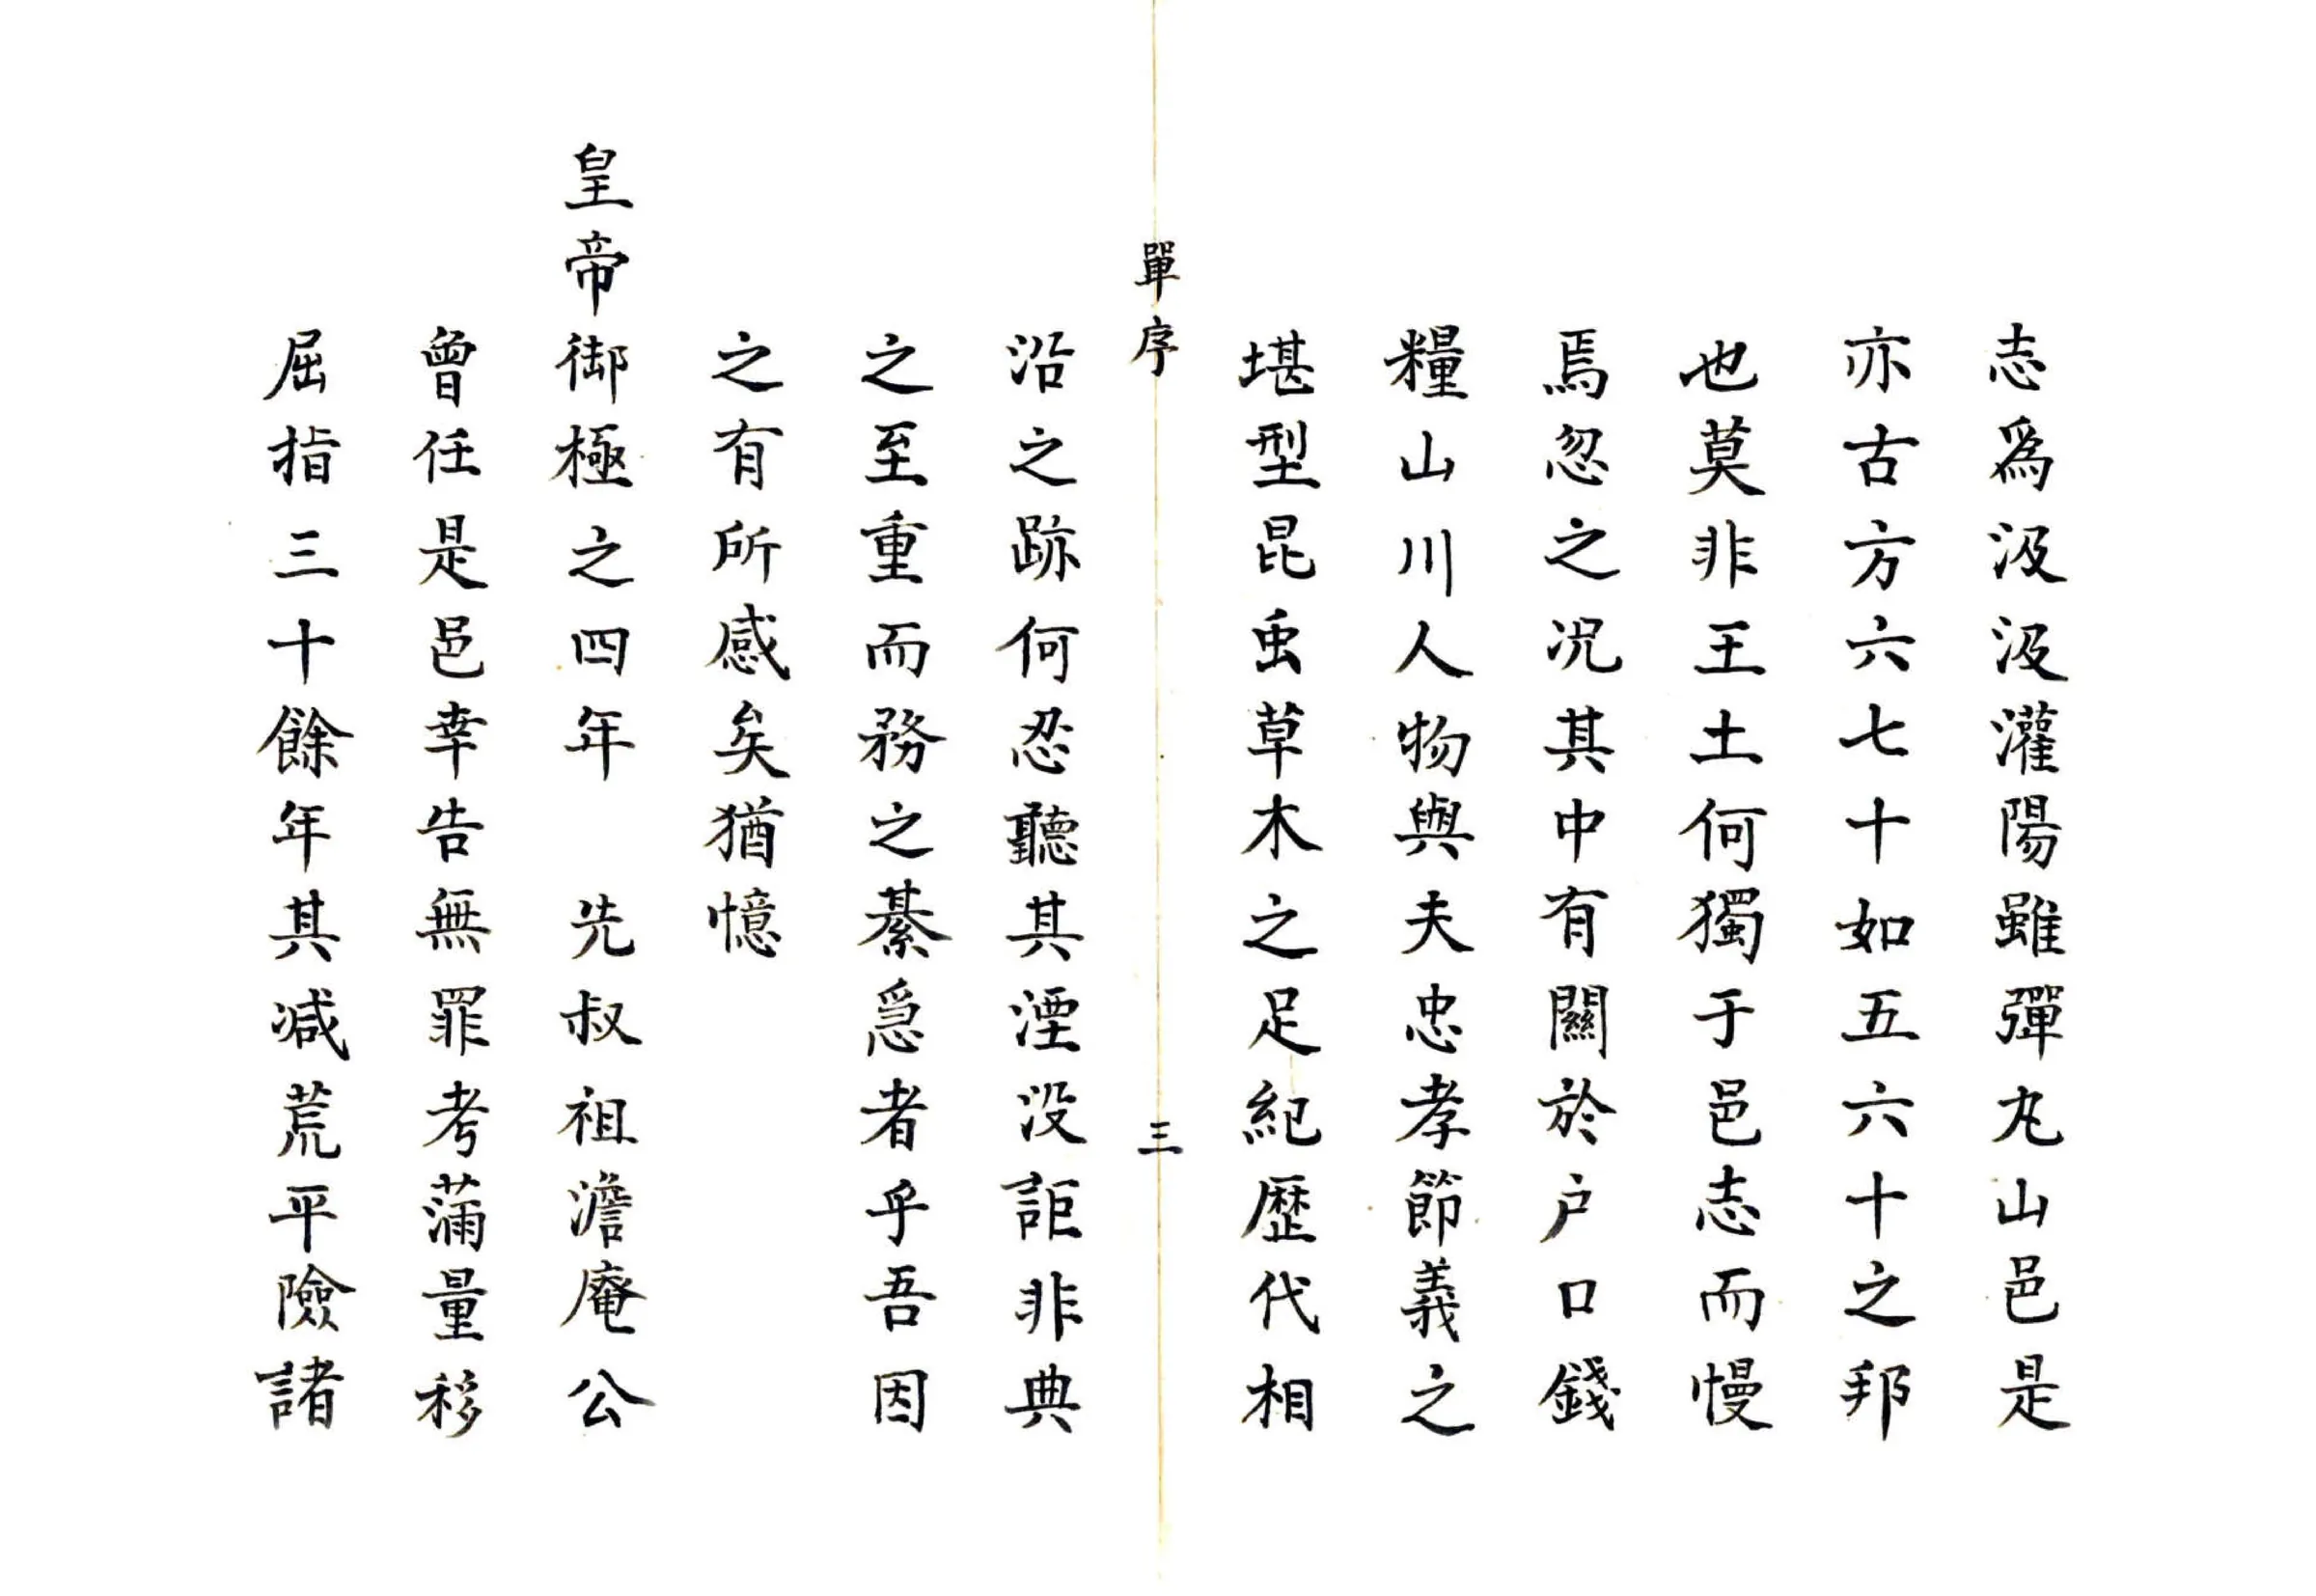 志爲汲汲灌陽雖彈丸山邑是
亦古方六七十如五六十之邦
也莫非王土何獨于邑志而慢
焉忽之况其中有關於户口錢
糧山川人物與夫忠孝節義之
堪型昆虫草木之足紀歷代相
單序 三
沿之跡何忍聽其湮没詎非典
之至重而務之綦急者乎吾因
之有所感矣猶憶
皇帝御極之四年 先叔祖澹庵公
曾任是邑幸告無罪考滿量移
屈指三十餘年其减荒平險諸